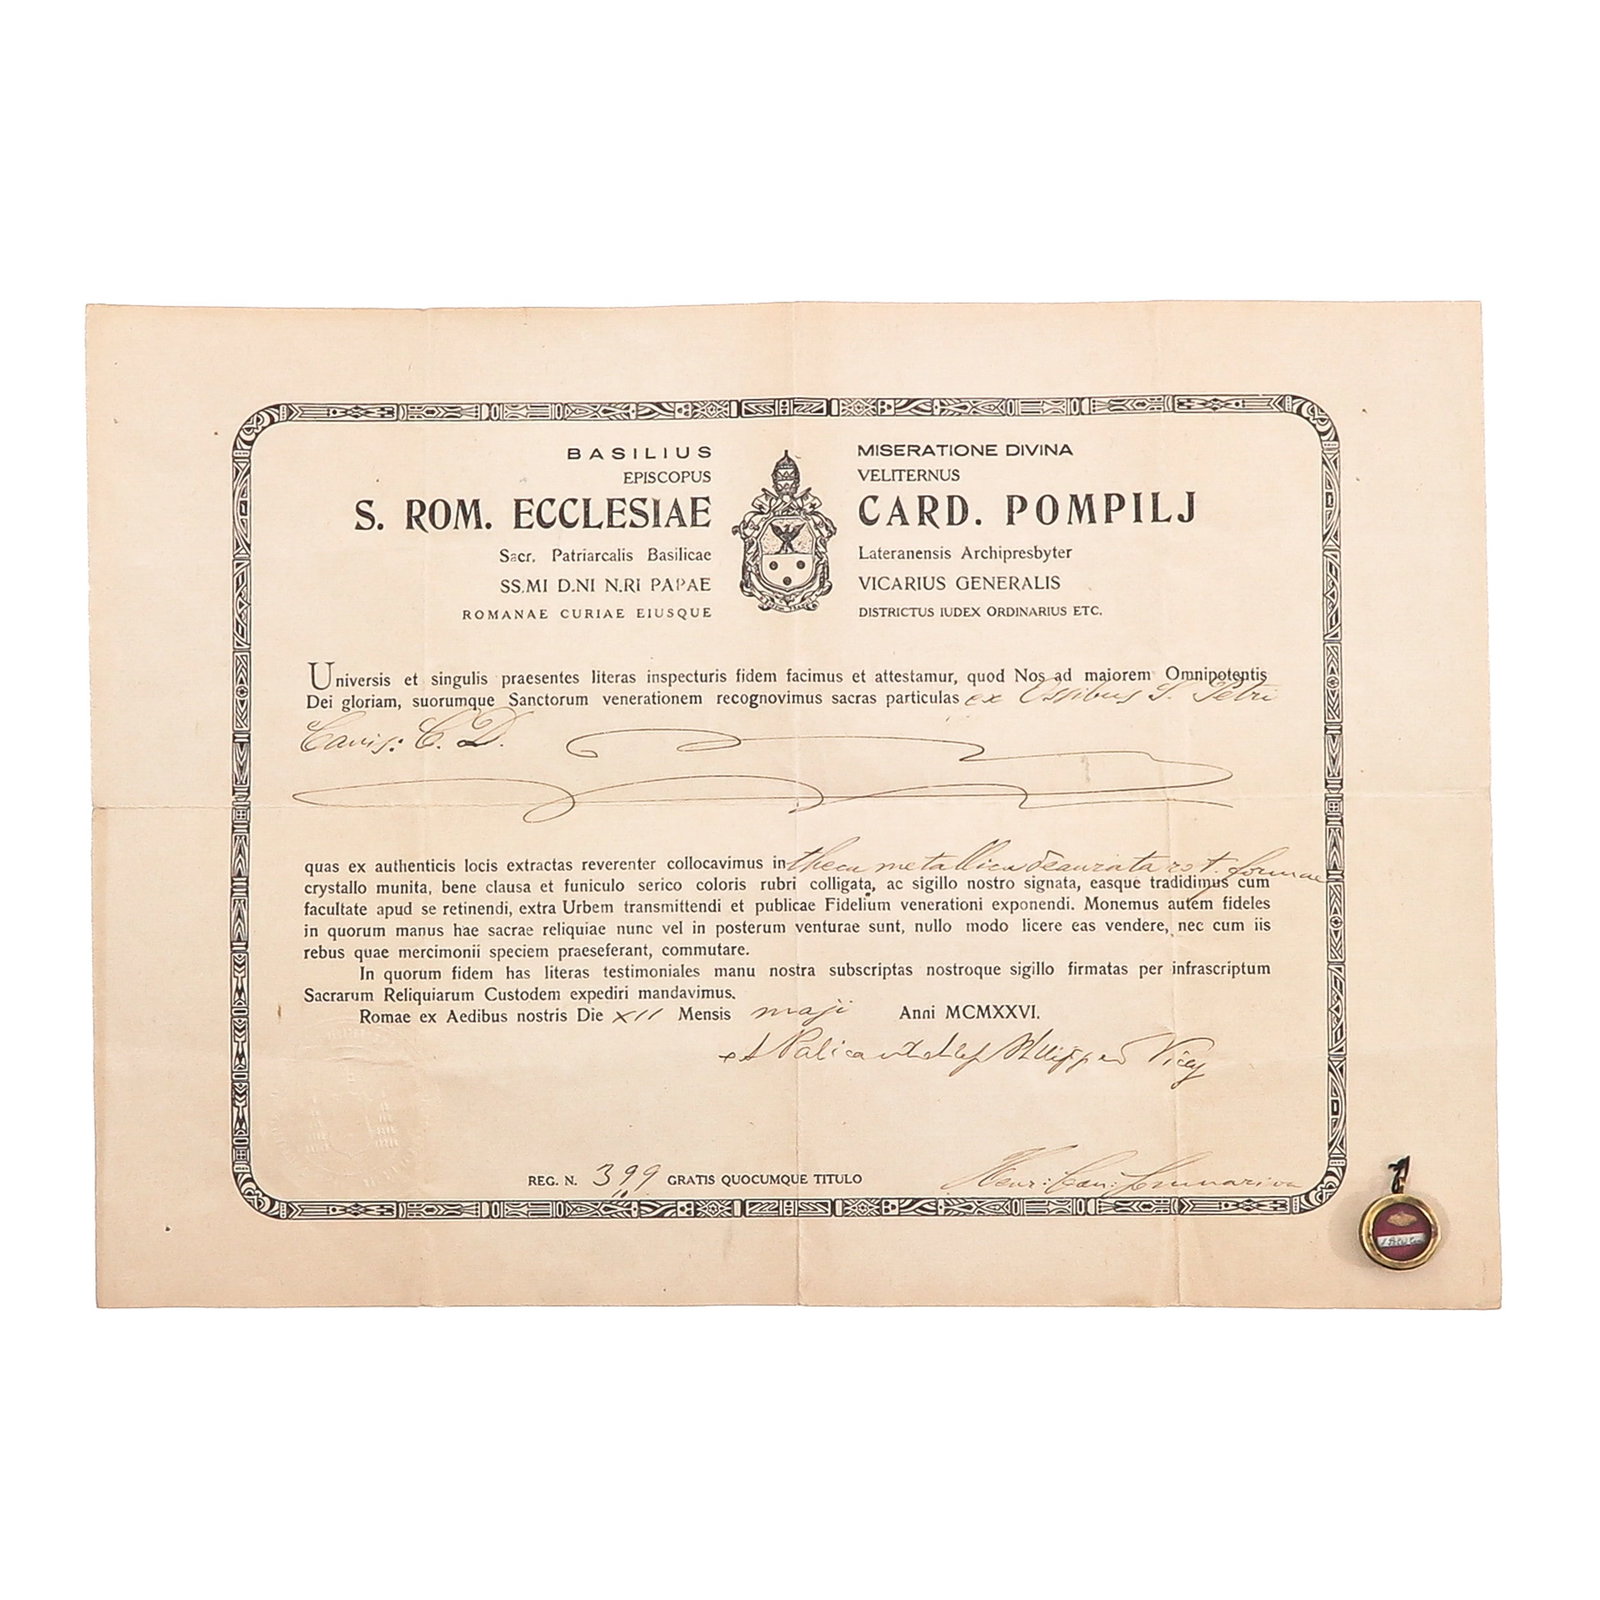 BASILIUS MISERATIONE DIVINA
EPISCOPUS VELITERNUS
S. ROM. ECCLESIAE CARD. POMPILJ
Sacr. Patriarcalis Basilicae Lateranensis Archipresbyter
SS.MI D.NI N.RI PAPAE VICARIUS GENERALIS
ROMANAE CURIAE EIUSQUE DISTRICTUS IUDEX ORDINARIUS ETC.
Universis et singulis praesentes literas inspecturis fidem facimus et attestamur, quod Nos ad maiorem Omnipotentis
Dei gloriam, suorumque Sanctorum venerationem recognovimus sacras particulas ex Ossibus S. Petri
Canis: C. D.
quas ex authenticis locis extractas reverenter collocavimus in theca metallica deaurata rot. formae
crystallo munita, bene clausa et funiculo serico coloris rubri colligata, ac sigillo nostro signata, easque tradidimus cum
facultate apud se retinendi, extra Urbem transmittendi et publicae Fidelium venerationi exponendi. Monemus autem fideles
in quorum manus hae sacrae reliquiae nunc vel in posterum venturae sunt, nullo modo licere eas vendere, nec cum iis
rebus quae mercimonii speciem praeseferant, commutare.
In quorum fidem has literas testimoniales manu nostra subscriptas nostroque sigillo firmatas per infrascriptum
Sacrarum Reliquiarum Custodem expediri mandavimus.
Romae ex Aedibus nostris Die XII Mensis maji Anni MCMXXVI.
REG. N. 399 GRATIS QUOCUMQUE TITULO